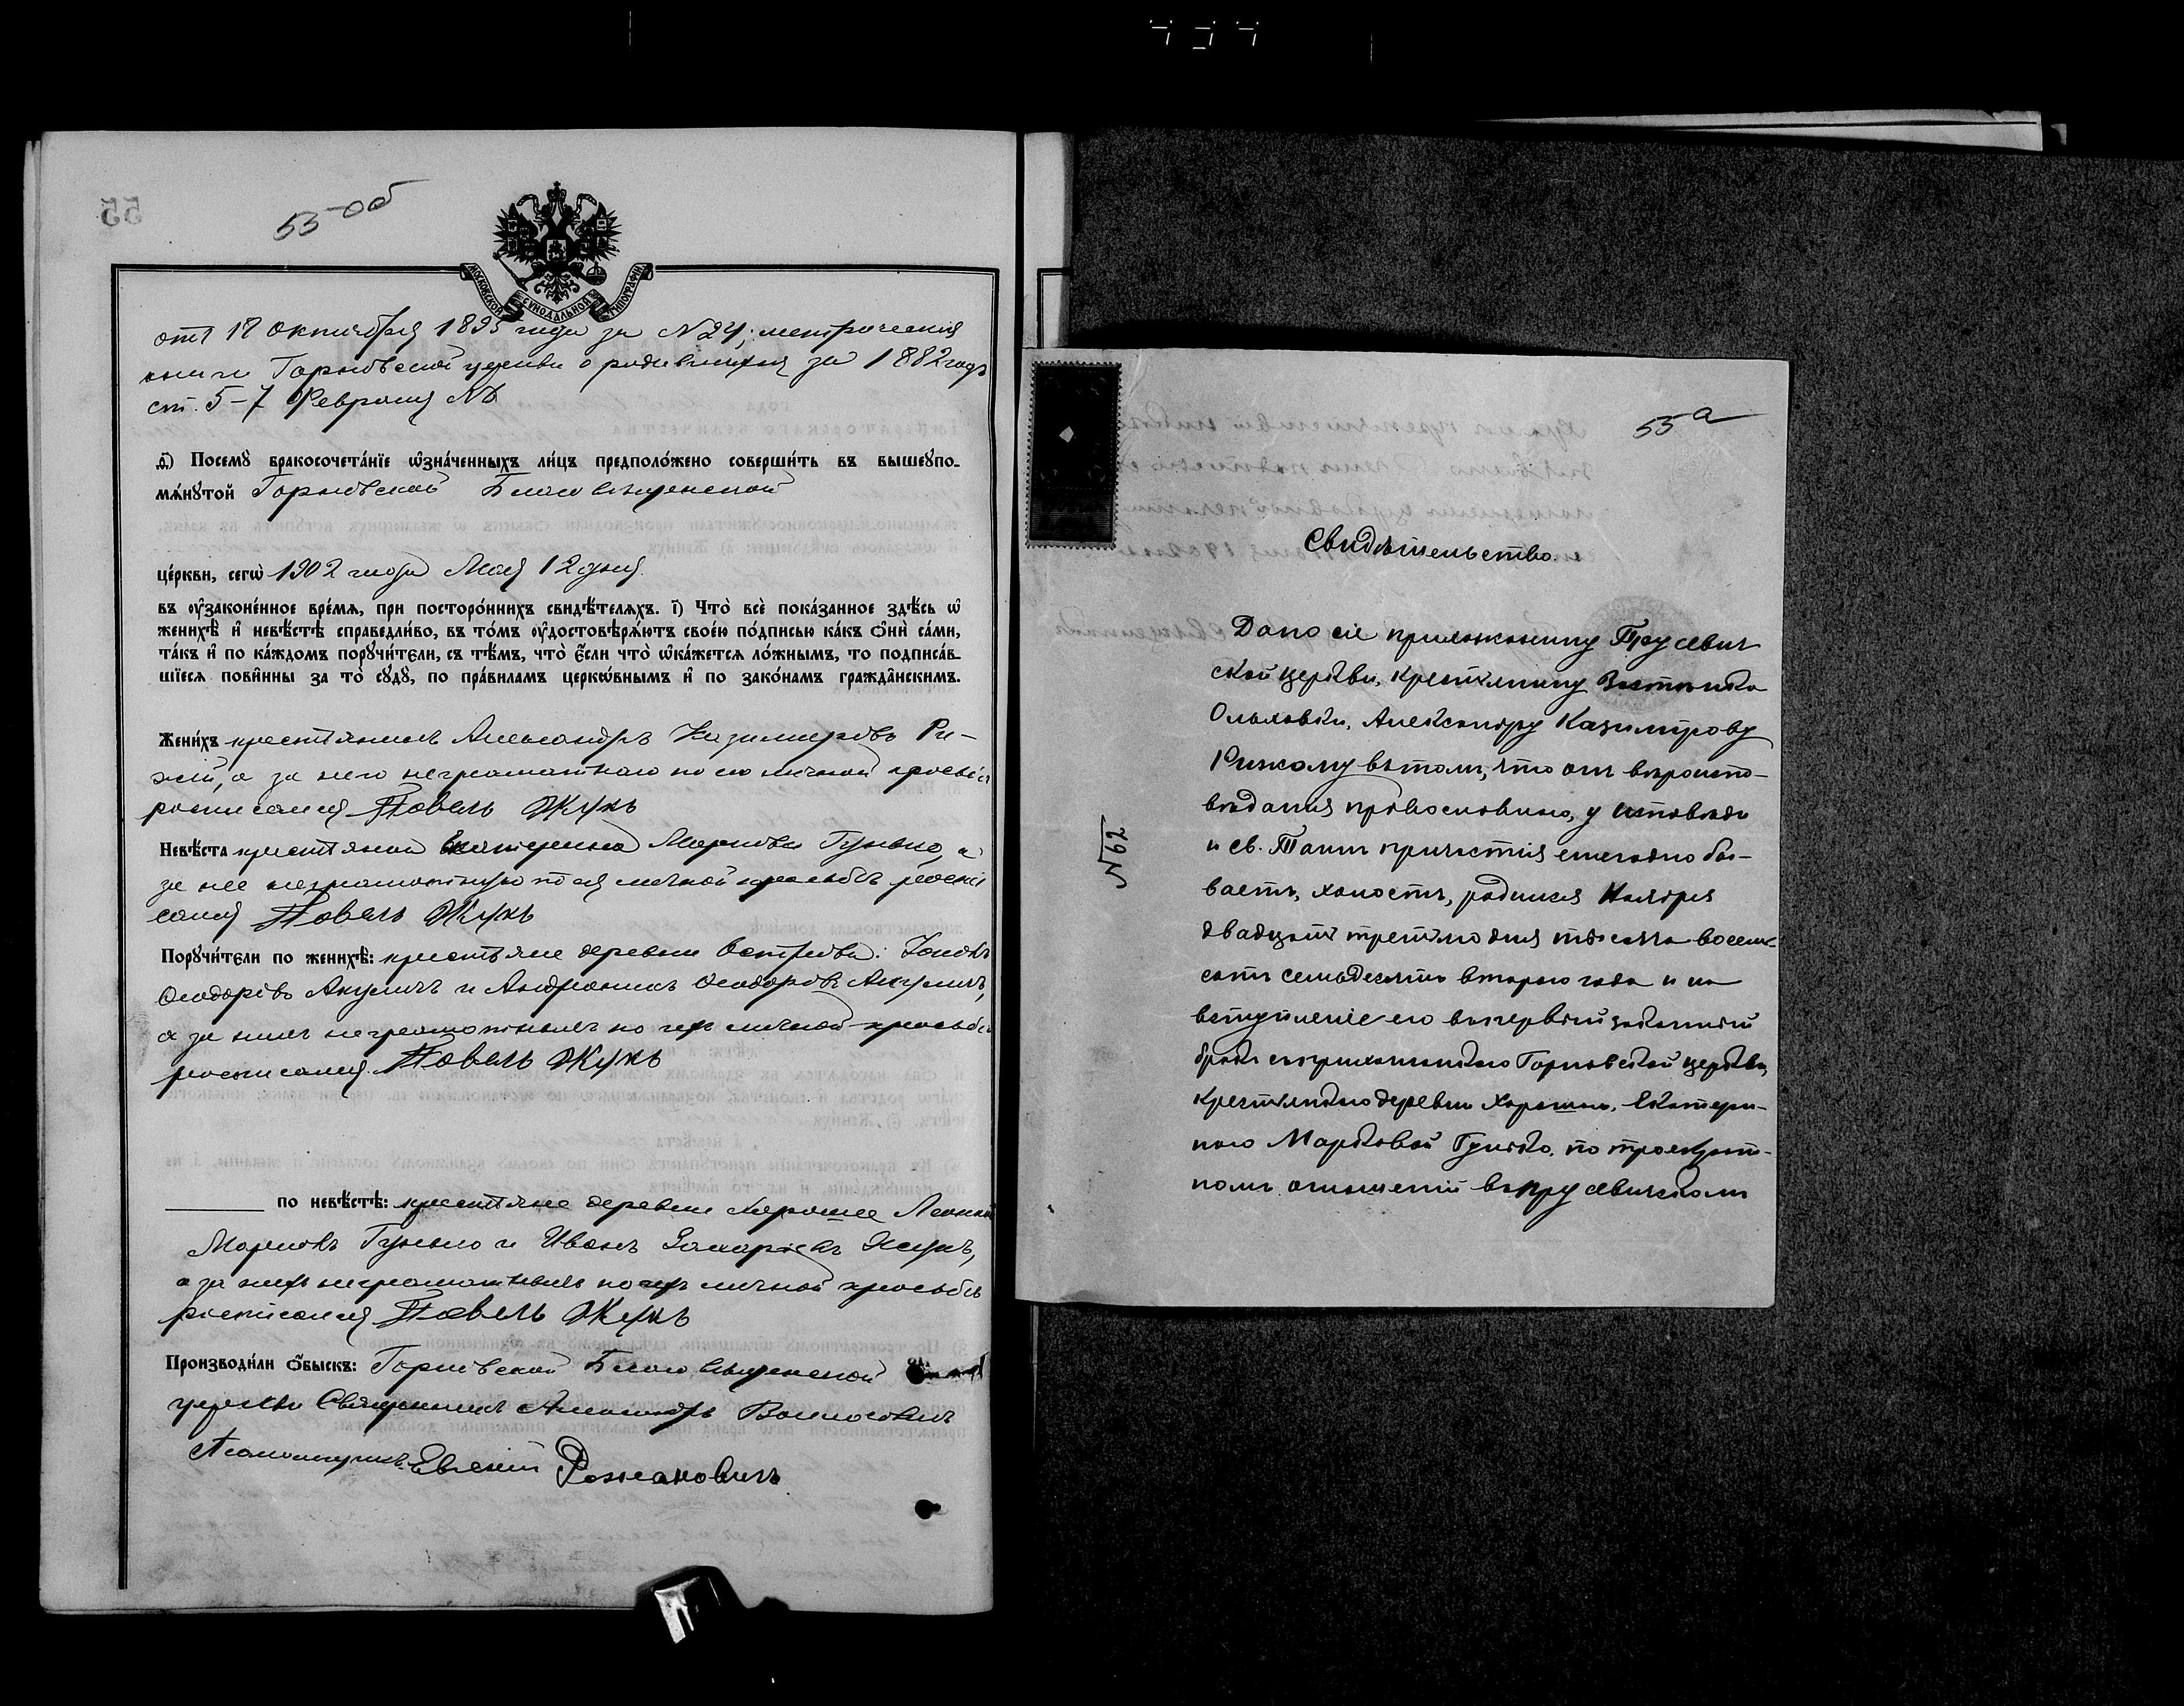 55-об
МОСКОВСКОЙ СѴНОДАЛЬНОЙ ТИПОГРАФІИ
отъ 17 октября 1895 года за №24; метрическія
книги Горновской церкви о родившихся за 1882 годъ
ст. 5-7 Февраля №
ѳ҃) Посемꙋ̀ бракосочета́нїе ѡ҆зна́ченныхъ ли́цъ предполо́жено соверши́ть въ вышеꙋпо-
мѧ́нꙋтой Горновской Благовѣщенской
це́ркви, сегѡ̀ 1902 года Мая 12 дня
въ ᲂу҆законе́нное вре́мѧ, при посторо́ннихъ свидѣ́телѧхъ. і҃) Что̀ всѐ пока́занное здѣ́сь ѡ҆
женихѣ̀ и҆ невѣ́стѣ справедли́во, въ то́мъ ᲂу҆достовѣрѧ́ютъ свое́ю по́дписью ка́къ ѻ҆нѝ са́ми,
та́къ и҆ по ка́ждомъ порꙋчи́тели, съ тѣ́мъ, что̀ є҆́сли что̀ ѡ҆ка́жетсѧ ло́жнымъ, то подписа́в-
шїесѧ пови́нны за то̀ сꙋдꙋ̀, по пра́виламъ церко́внымъ и҆ по зако́намъ гражда́нскимъ.
Жени́хъ крестьянинъ Александръ Казимировъ Ри-
жій, а за него неграмотнаго по его личной просьбѣ
росписался Павелъ Жукъ
Невѣ́ста крестьянка Екатерина Маркова Гунько, а
за нее неграмотную по ея личной просьбѣ роспи
сался Павелъ Жукъ
Порꙋчи́тели по женихѣ̀: крестьяне деревни
Ѳеодоровъ Акуличъ и Андроникъ Ѳеодоровъ Акуличъ,
а за нихъ неграмотныхъ по ихъ личной просьбѣ
росписался Павелъ Жукъ
по невѣ́стѣ: крестьяне деревни Хорошее
Марковъ Гунько и Иванъ Захаріевъ
а за нихъ неграмотныхъ по ихъ личной просьбѣ
росписался Павелъ Жукъ
Производи́ли ѻ҆́быскъ: Горновской Благовѣщенской
церкви Священникъ Александръ
Псаломщикъ Евгеній Рожановичъ
55 а
Свидѣтельство.
№62
Дано сіе прихожанину Трусевич
ской церкви, крестьянину
Ольховки, Александру Казимірову
Рижкому въ томъ, что онъ вѣроиспо-
вѣданія православнаго, у исповѣди
и св. Таинъ причастія ежегодно бы-
ваетъ, холостъ, родился Ноября
двадцать третьяго дня тысяча восемь
сотъ семьдесятъ второго года и на
вступленіе его въ первый законный
бракъ съ прихожанкою Горновской церкви,
крестьянкою деревни Хорошаго, Екатери-
ною Марковой Гунько, по троекрат-
номъ оглашеніи въ Трусевичскомъ